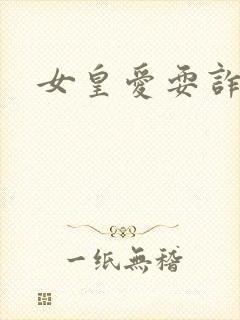 女皇愛耍詐
一纸無稽